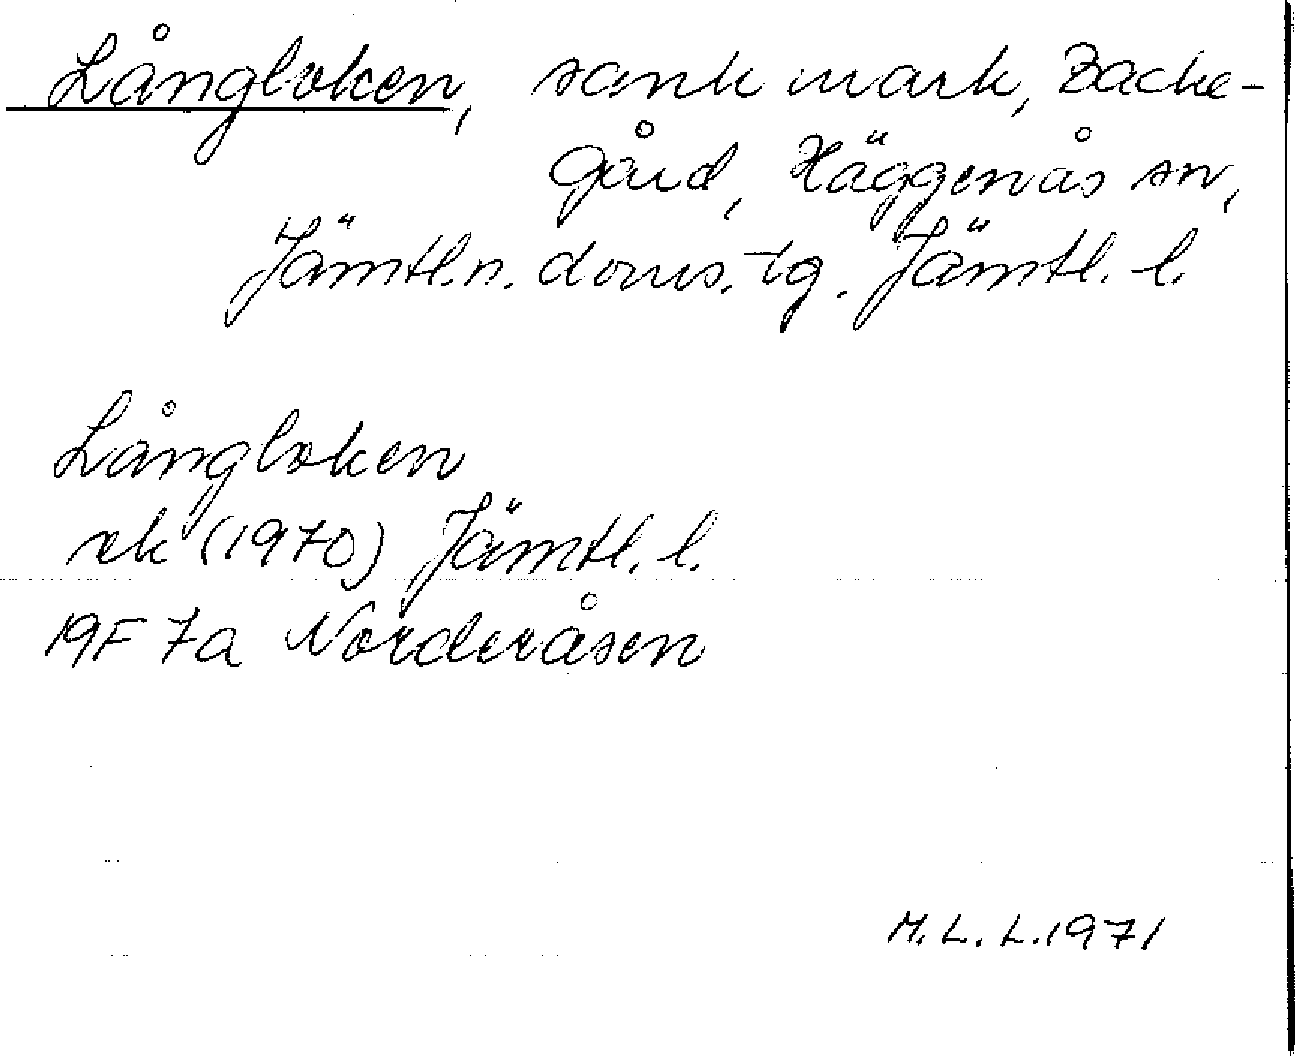 Långloken, sank mark, Backe-
gård, Häggenås sn,
Jämtl.n. doms.-tg. Jämtl. l.
Långloken
ek (1970) Jämtl. l.
19F 7a Norderåsen
M.L.L.1971